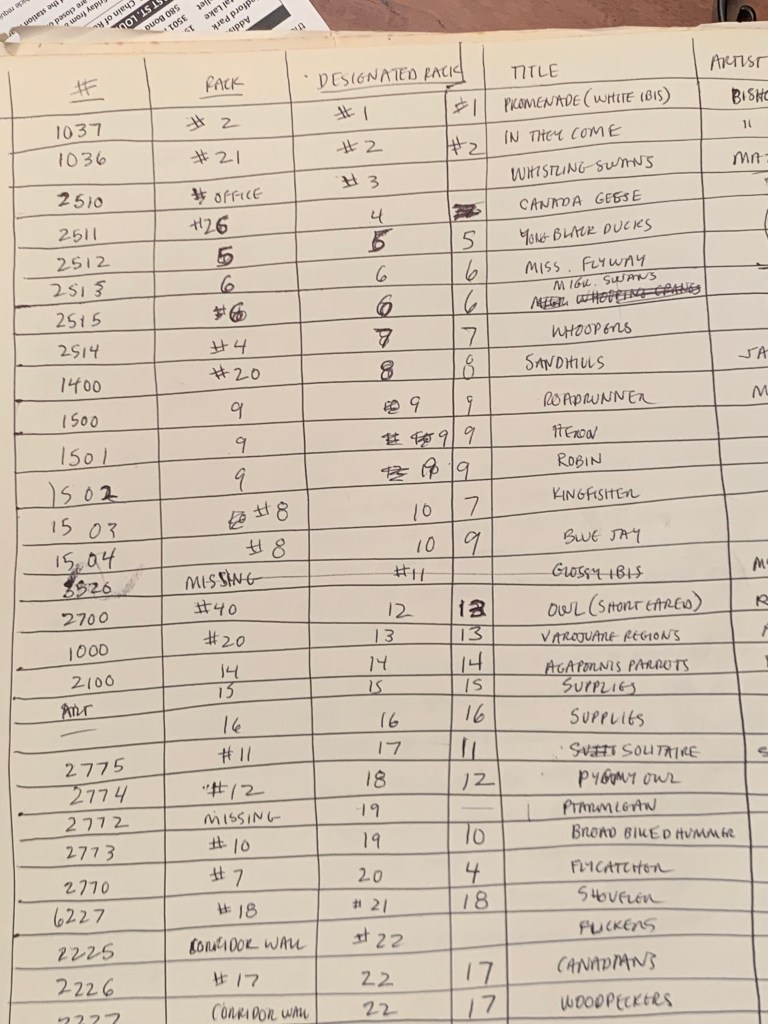 # RACK DESIGNATED RACK TITLE ARTIST
1037 # 2 # 1 #1 PROMENADE (WHITE IBIS) BISHO
1036 #21 #2 #2 IN THEY COME "
2510 # OFFICE # 3 WHISTLING SWANS MA
2511 #26 4 CANADA GEESE
2512 5 5 5 BLACK DUCKS
2513 6 6 6 MISS. FLYWAY
2515 #6 6 6 MIGR. SWANS
2514 #4 7 7 WHOOPERS
1400 #20 8 8 SANDHILLS JA
1500 9 9 9 ROADRUNNER M
1501 9 9 9 HERON
1502 9 9 9 ROBIN
1503 #8 10 7 KINGFISHER
1504 #8 10 9 BLUE JAY
MISSING #11 GLOSSY IBIS M
2700 #40 12 12 OWL (SHORT EARED) R
1000 #20 13 13 REGIONS
2100 14 14 14 AGAPORNIS PARROTS
ART 15 15 15 SUPPLIES
16 16 16 SUPPLIES
2775 #11 17 11 SOLITAIRE S
2774 #12 18 12 PYGMY OWL
2772 MISSING 19 — PTARMIGAN
2773 # 10 19 10 BROAD BILED HUMMER
2770 # 7 20 4 FLYCATCHER
6227 #18 # 21 18 SHOVELER
2225 CORRIDOR WALL #22 FLICKERS
2226 #17 22 17 CANADIANS
2227 CORRIDOR WALL 22 17 WOODPECKERS